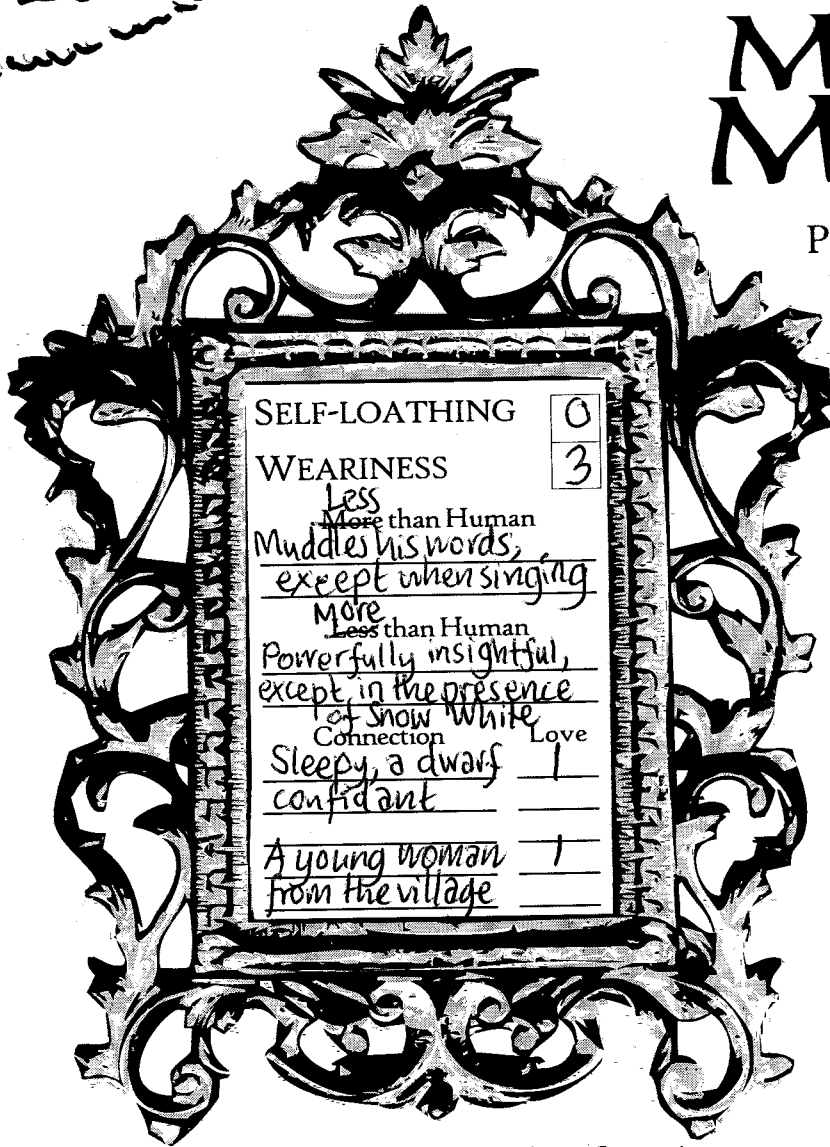 M
M
P
SELF-LOATHING 0
WEARINESS 3
Less
More than Human
Muddles his words,
except when singing
More
Less than Human
Powerfully insightful,
except in the presence
of Snow White
Connection Love
Sleepy, a dwarf 1
confidant
A young woman 1
from the village